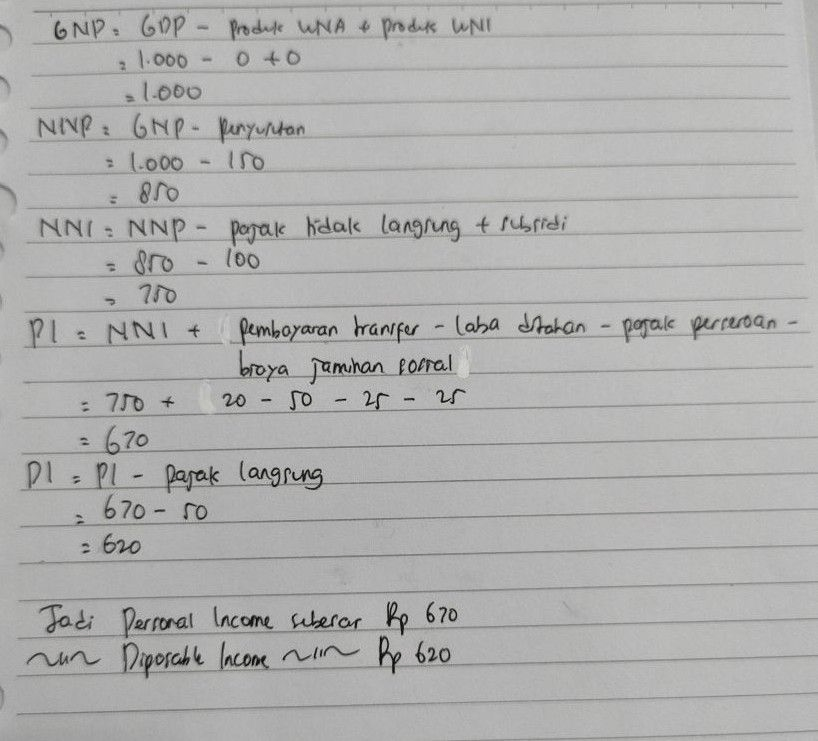 GNP = GDP - Produk WNA + Produk WNI
= 1.000 - 0 + 0
= 1.000
NNP = GNP - Penyusutan
= 1.000 - 150
= 850
NNI = NNP - pajak tidak langsung + subsidi
= 850 - 100
= 750
PI = NNI + pembayaran transfer - laba ditahan - pajak perseroan -
biaya jaminan sosial
= 750 + 20 - 50 - 25 - 25
= 670
DI = PI - pajak langsung
= 670 - 50
= 620
Jadi Personal Income sebesar Rp 670
Diposable Income Rp 620